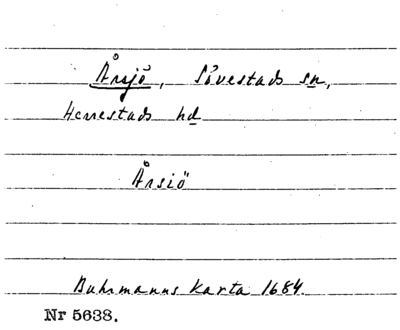 Årsjö, Sövestads sn,
Herrestads hd
Årsiö
Buhrmanns Karta 1684.
Nr 5638.